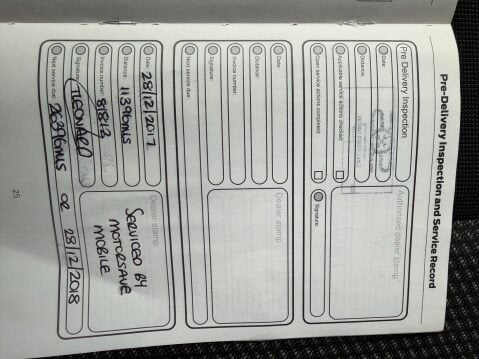 Pre-Delivery Inspection and Service Record
Pre Delivery Inspection
Date:
Distance:
Applicable service actions checked:
Open service actions completed:
Authorised dealer stamp
Signature:
Date:
Distance:
Invoice number:
Signature:
Next service due:
Dealer stamp
Date: 28/12/2017
Distance: 11396MLS
Invoice number: 81842
Signature: T LEONARD
Next service due: 26396MLS OR 28/12/2018
Dealer stamp
SERVICED BY
MOTORSAVE
MOBILE
25